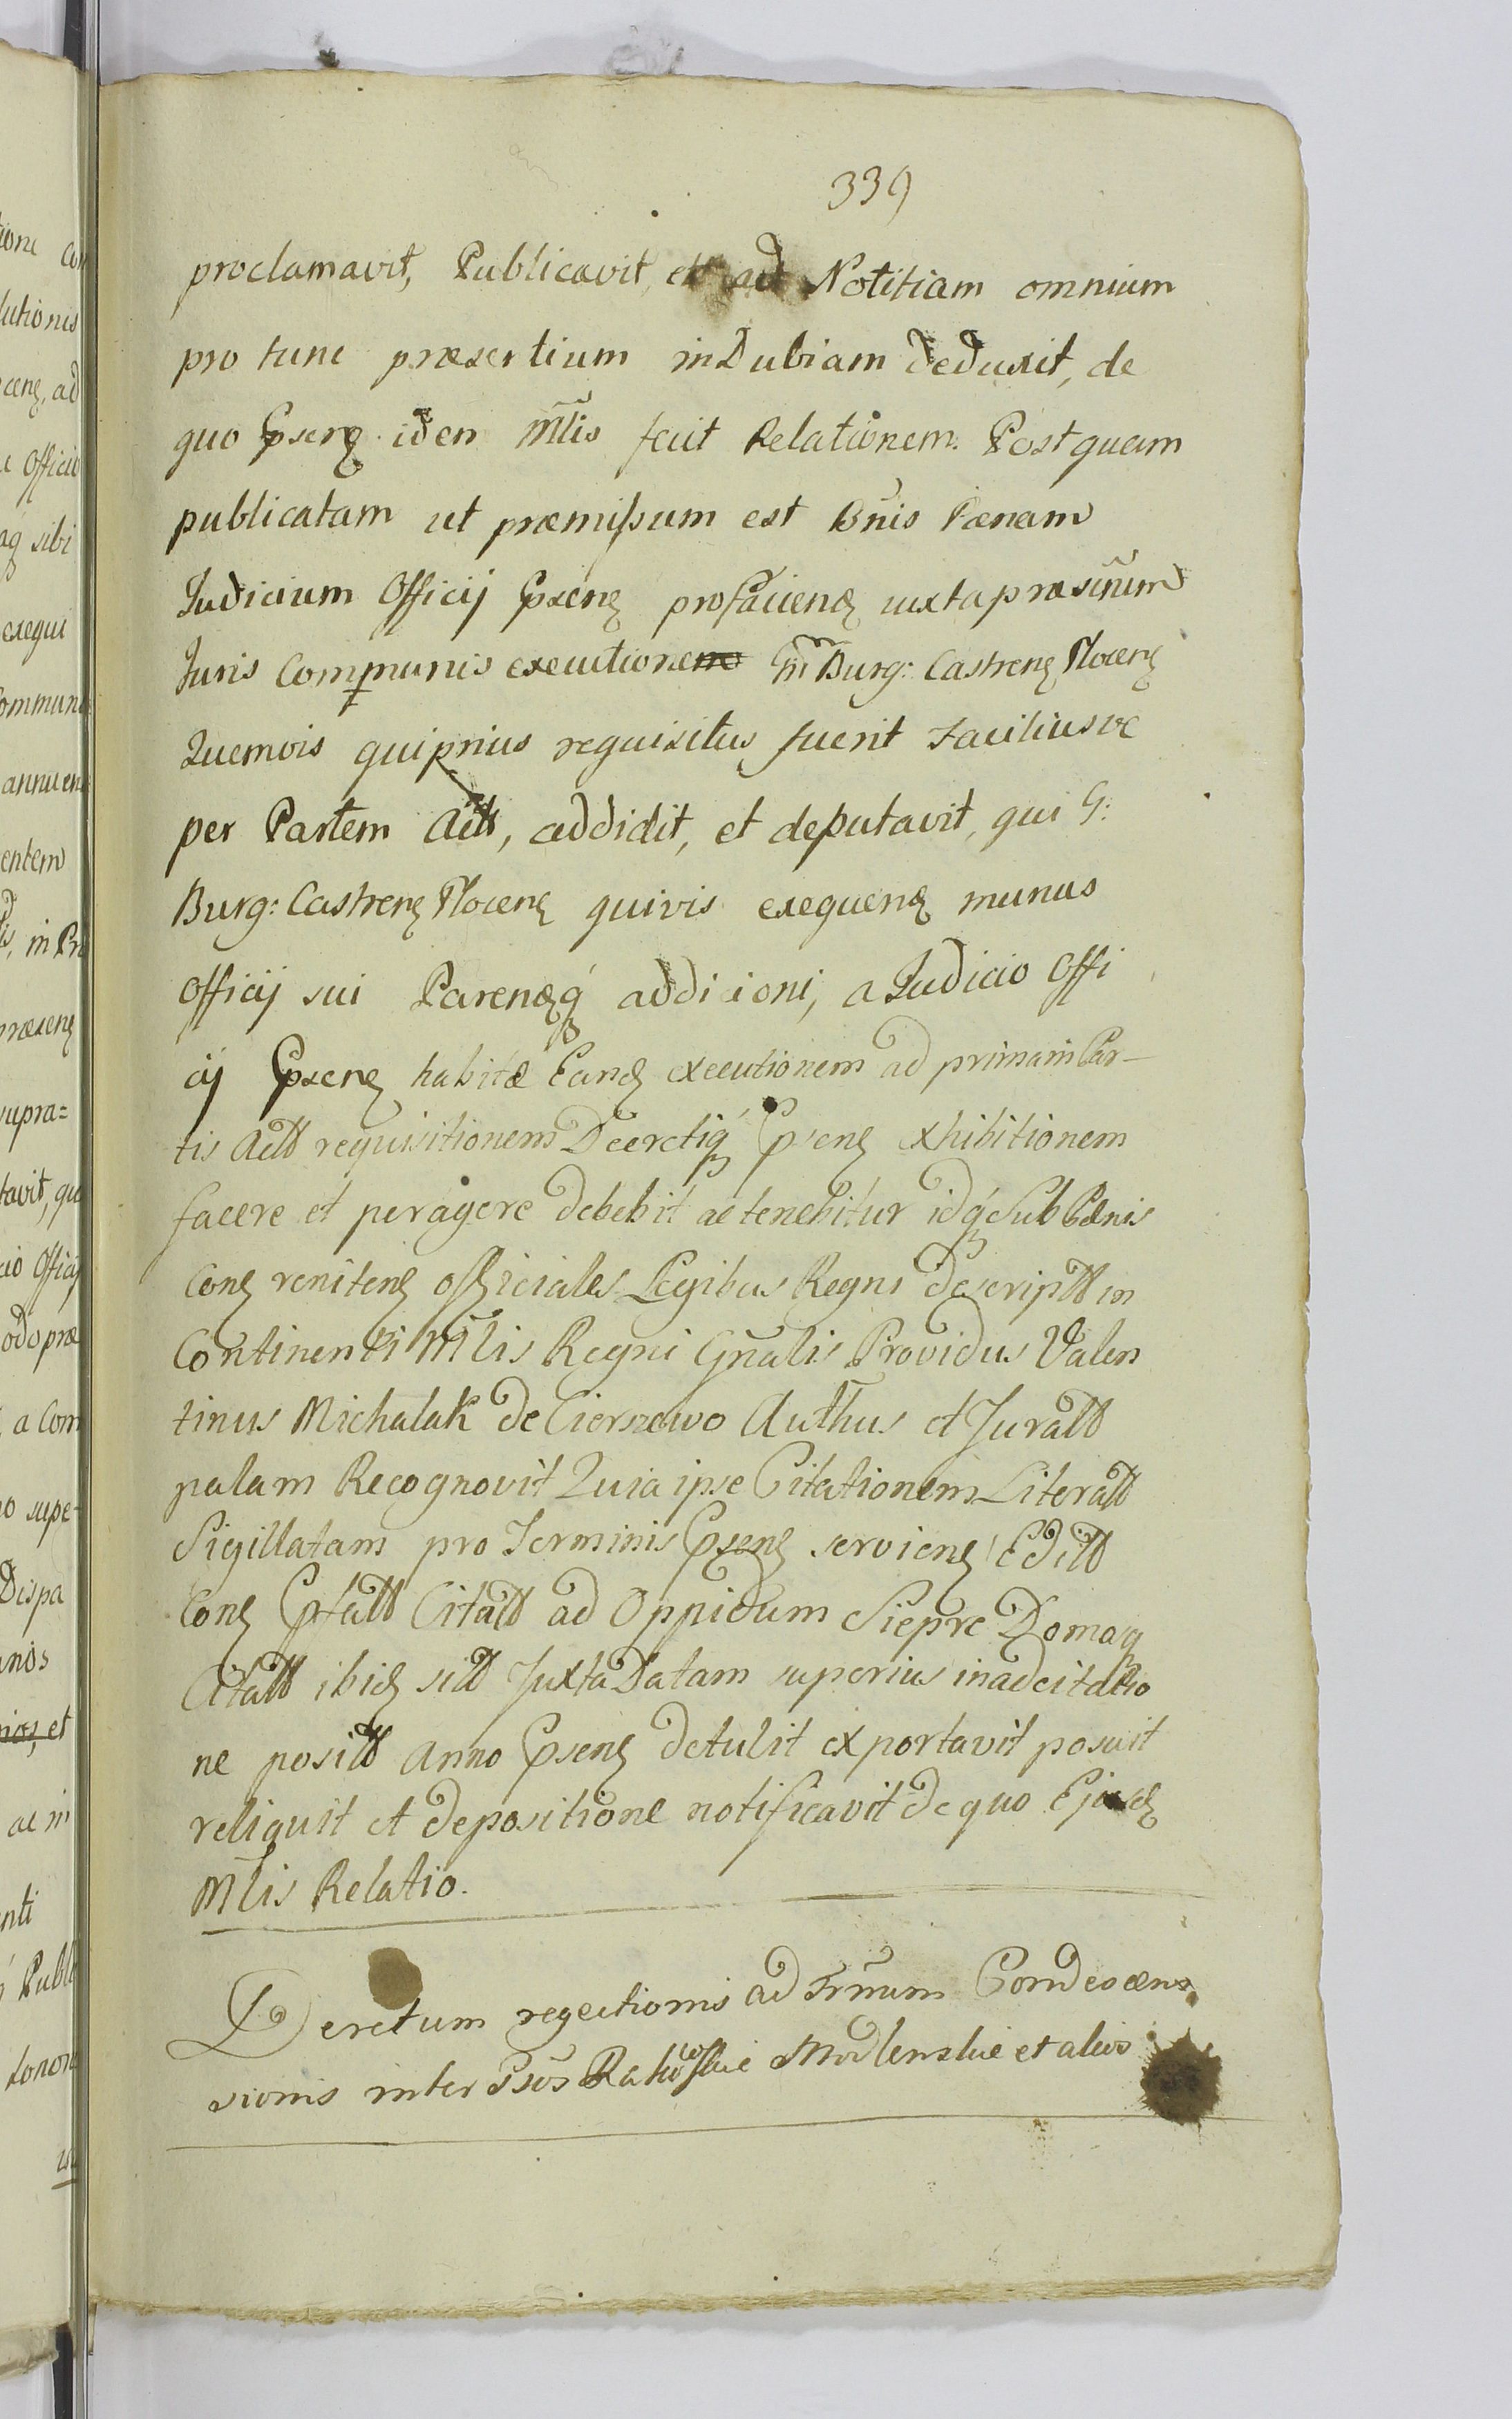 339
proclamavit, Publicavit, et ad Notitiam omnium
pro tunc præsertium in Dubiam deduxit, de
quo Epsenę iden Ml̃is fecit Relationem. Postquam
publicatam ut præmissum est Bñis Pænam
Judicium Officij Epsenę pro faciend iuxta præscñum
Juris Communis executionem Gm̃ Burg: Castrenę Plocenę
Quemvis qui prius requisitus fuerit faciliusve
per Partem Actt, addidit, et deputavit, qui G:
Burg: Castrenę Plocenę quivis exequenę munus
Officij sui Parendq́ addicioni, a Judicio Offi
cij Epsenę habitæ Eandę executionem ad primam Par-
tis Actt requisitionem Decretiq́ Epsenę exhibitionem
facere et peragere debebit ac tenebitur idq́ Sub Pænis
Conę renitenę officiales Legibus Regni descriptt in
Continenti Ml̃is Regni Gñalis Providus Valen
tinus Michalak de Cierszewo Authus et Juratt
palam Recognovit Quia ipse Citationem Literatt
Sigillatam pro Terminis Epsenę servienę Editt
Conę Eptatt Citatt ad Oppidum Sieprc Domoq
Citatt ibidę sitt Juxta Datam superius in adcitatio
ne positt Anno Epsenę detulit exportavit posuit
reliquit et depositione notificavit de quo Ejusdę
Ml̃is Relatio.
Decretum rejectionis ad Trm̃um Condescens
sionis inter Gsõs Rakowskie Modlenskie et alios